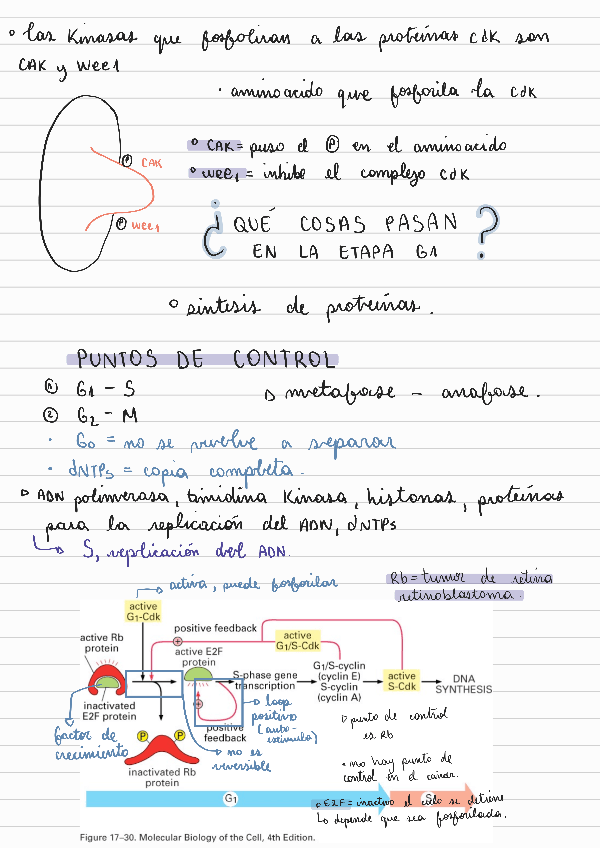 ° Las Kinasas que fosforilan a las proteínas cdk son
CAK y Wee1
· aminoacido que fosforila la cdk
° CAK = puso el Ⓟ en el aminoacido
° wee1 = inhibe el complejo cdk
P CAK
P wee1
¿QUÉ COSAS PASAN
EN LA ETAPA G1?
° síntesis de proteínas.
PUNTOS DE CONTROL
① G1 - S
▷ metafase - anafase.
② G2 - M
· G0 = no se vuelve a separar
· dNTPs = copia completa.
▷ ADN polimerasa, timidina Kinasa, histonas, proteínas
para la replicación del ADN, dNTPs
↳ S, replicación del ADN.
→ activa, puede fosforilar
Rb = tumor de retina
retinoblastoma.
active
G1-Cdk
positive feedback
active
G1/S-Cdk
active Rb
protein
active E2F
protein
S-phase gene
transcription
G1/S-cyclin
(cyclin E)
S-cyclin
(cyclin A)
active
S-Cdk
DNA
SYNTHESIS
inactivated
E2F protein
positive
feedback
P P
inactivated Rb
protein
factor de
crecimiento
loop
positivo
(auto-
estimula)
no es
reversible
▷ punto de control
es Rb
· no hay punto de
control en el cáncer.
G1
S
° E2F = inactivo el ciclo se detiene
↳ depende que sea fosforilada.
Figure 17–30. Molecular Biology of the Cell, 4th Edition.